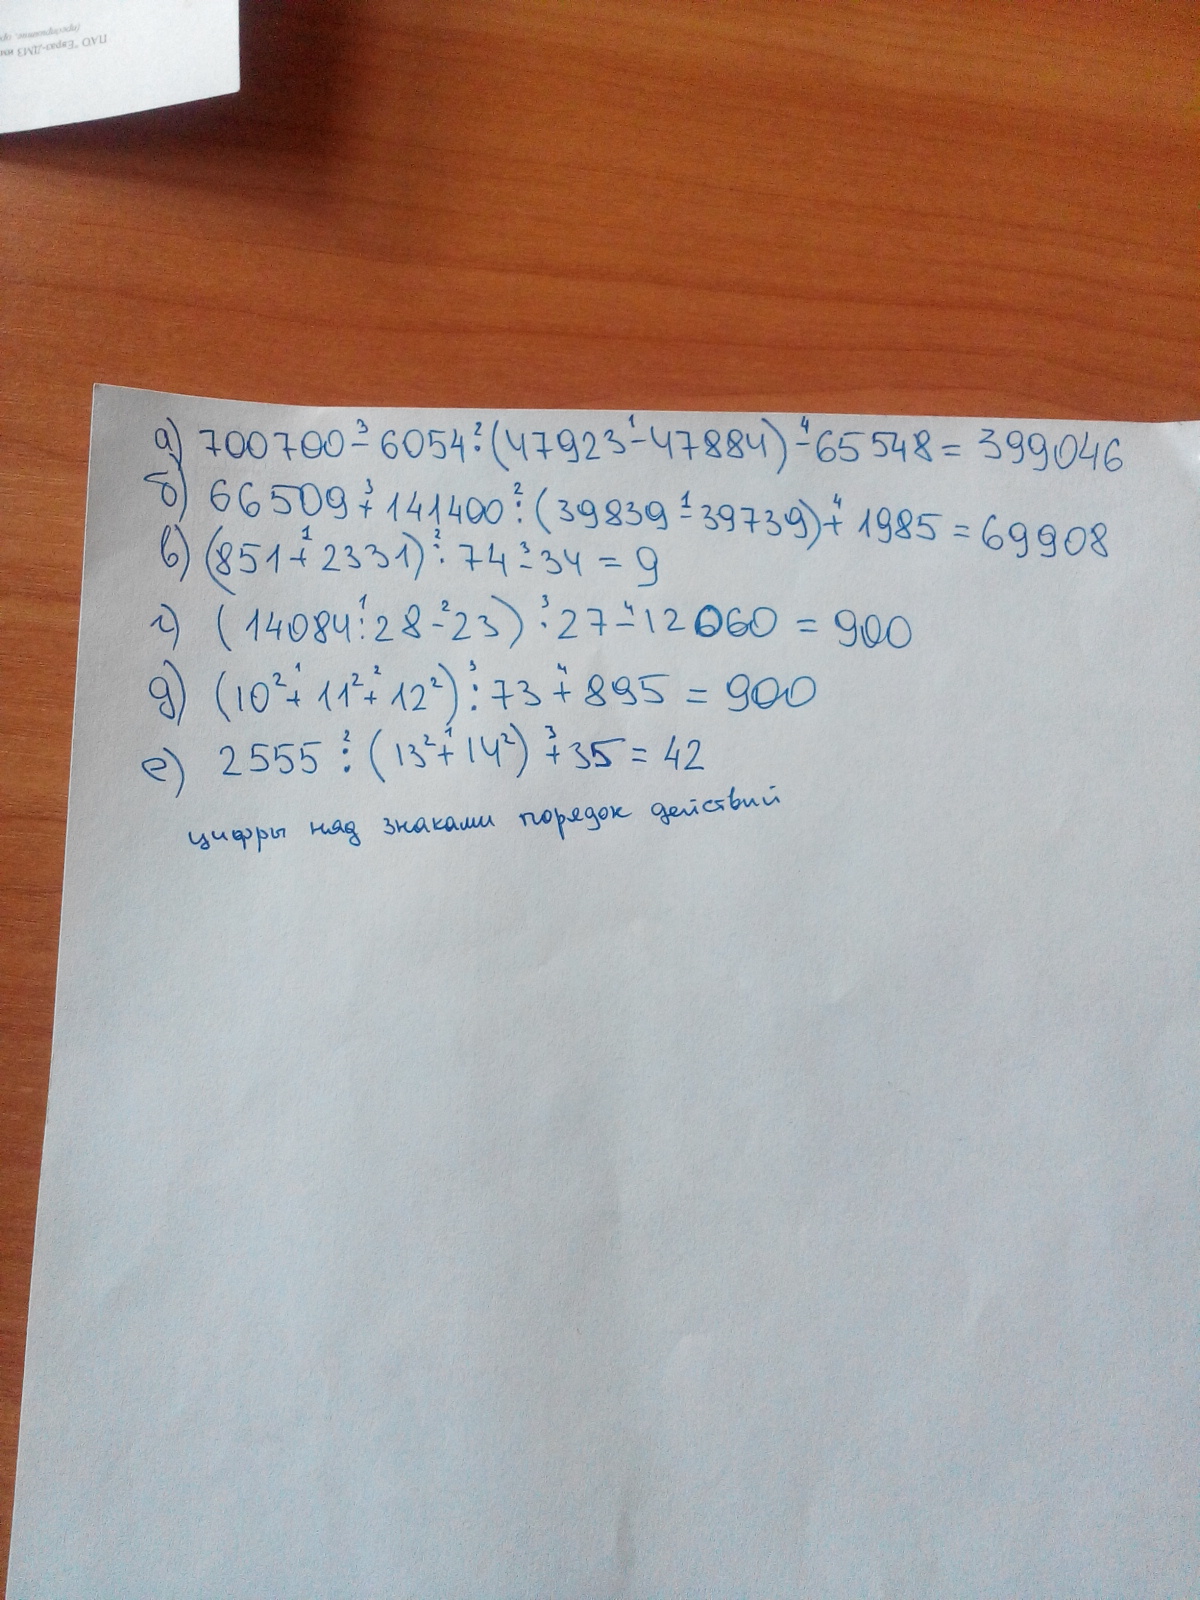 ПАО "Евраз-ДМЗ им
а) 700700 -³ 6054 :² (47923 -¹ 47884) -⁴ 65548 = 399046
б) 66509 +³ 141400 :² (39839 -¹ 39739) +⁴ 1985 = 69908
в) (851 +¹ 2331) :² 74 -³ 34 = 9
г) (14084 :¹ 28 -² 23) ·³ 27 -⁴ 12060 = 900
д) (10² +¹ 11² +² 12²) :³ 73 +⁴ 895 = 900
е) 2555 :² (13² +¹ 14²) +³ 35 = 42
цифры над знаками порядок действий